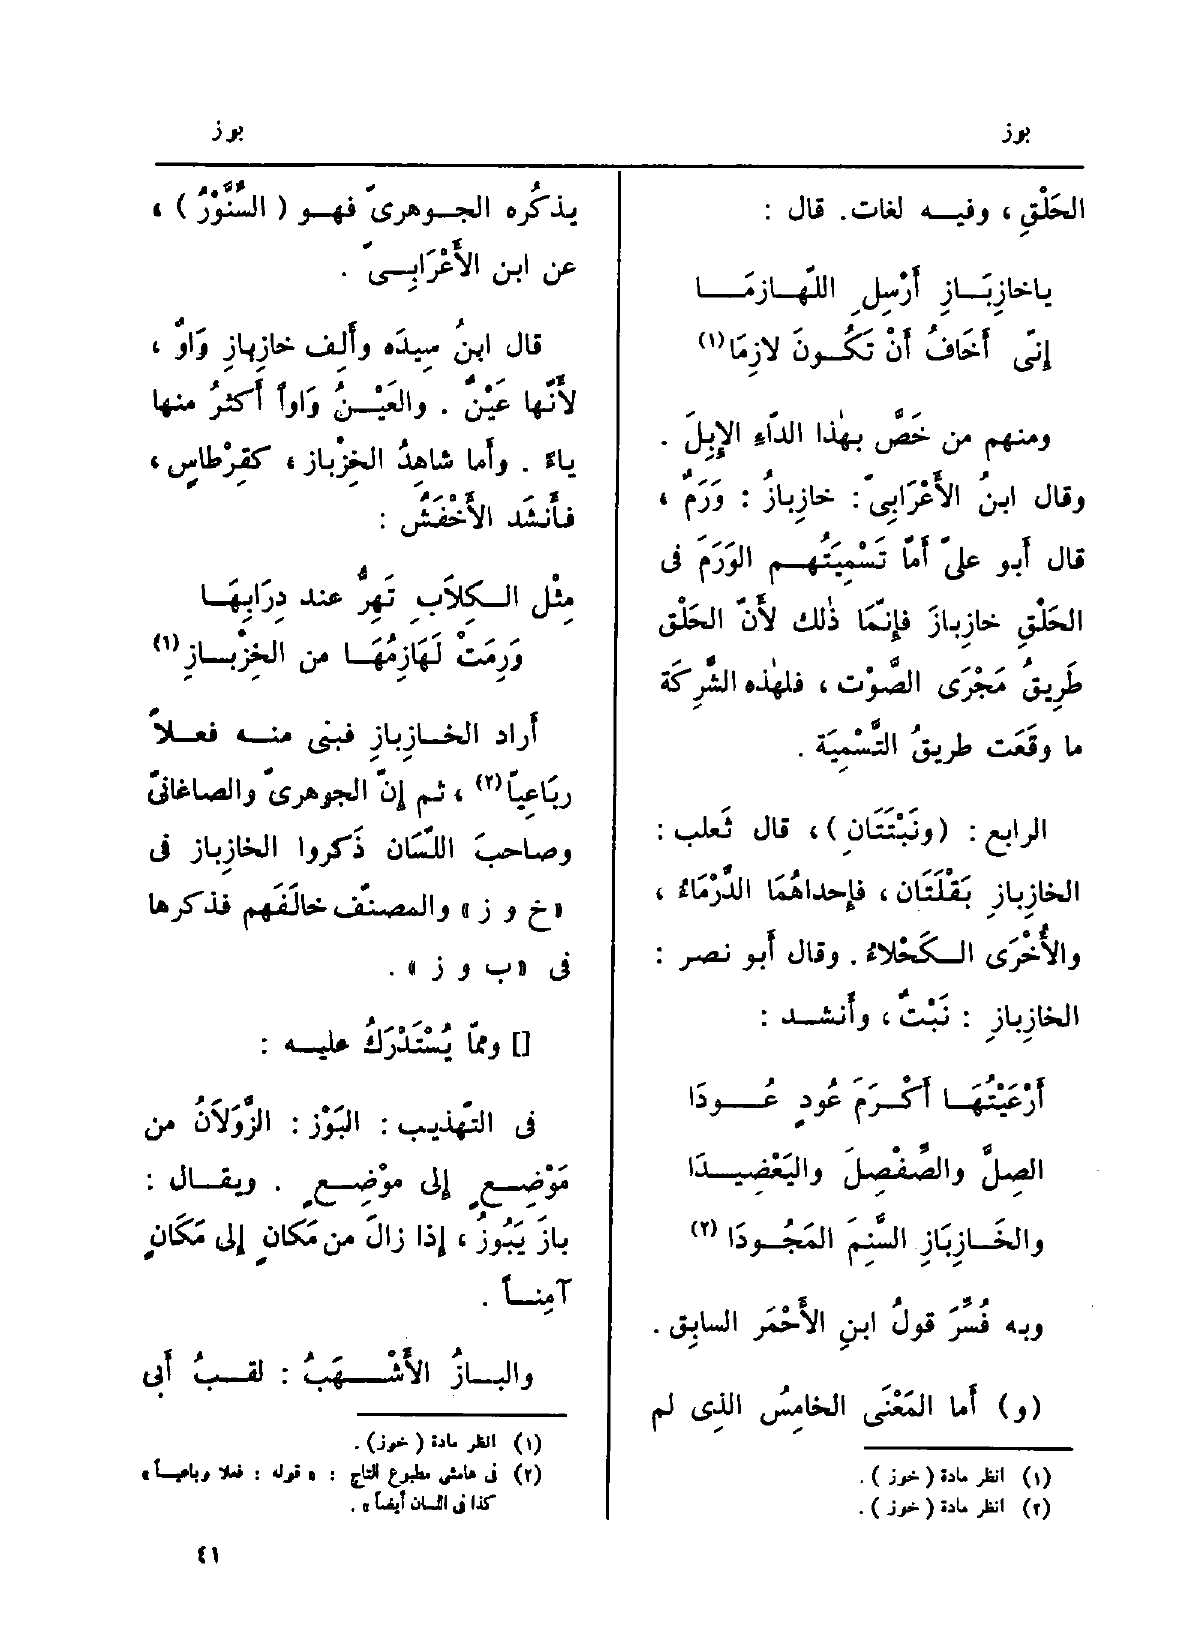 بوز
بوز
الحَلْقِ ، وفيــه لغات. قال :
ياخازِبَــازِ أَرْسِلِ اللَّهــازمَــا
إنّى أَخَافُ أَنْ تَكُــونَ لازِمَا(١)
ومنهم من خَصَّ بهٰذا الدّاءِ الإِبِلَ .
وقال ابنُ الأَعْرَابِىّ : خازِبازُ : وَرَمٌ ،
قال أَبو علىّ أَمّا تَسْمِيَتُهــم الوَرَمَ فى
الحَلْقِ خازِبازَ فإِنّمَا ذٰلك لأَنّ الحَلْق
طَرِيقُ مَجْرَى الصَّوْت ، فلهٰذه الشَّرِكَة
ما وقَعَت طريقُ التَّسْمِيَة .
الرابع : (ونَبْتَتَانِ) ، قال ثَعلب :
الخازِبازِ بَقْلَتَان ، فإِحداهُمَا الدَّرْمَاءُ ،
والأُخْرَى الــكَحْلاءُ . وقال أَبو نصر :
الخازِبازِ : نَبْتٌ ، وأَنشــد :
أَرْعَيْتُهَــا أَكْــرَمَ عُودٍ عُــودَا
الصِلَّ والصِّفْصِلَ واليَعْضِيــدَا
والخَــازِبَازِ السَّنِمَ المَجُــودَا (٢)
وبه فُسِّرَ قولُ ابنِ الأَحْمَر السابِق .
(و) أَما المَعْنَى الخامِسُ الذِى لم
(١) انظر مادة ( خوز ) .
(٢) انظر مادة ( خوز ) .
يذكُره الجــوهرىّ فهــو ( السِّنَّوْرُ ) ،
عن ابن الأَعْرَابِــىّ .
قال ابنُ سِيدَه وأَلِف خازِبازِ وَاوٌ ،
لأَنّها عَيْنٌ . والعَيْــنُ وَاواً أَكثرُ منها
ياءً . وأَما شاهِدُ الخِزْباز ، كقِرْطاسٍ ،
فأَنشَد الأَخْفَشُ :
مِثْل الــكِلاَبِ تَهِرُّ عند دِرَابِهَــا
وَرِمَتْ لَهَازِمُهَــا من الخِزْبــازِ(١)
أَراد الخــازِبازِ فبنى منــه فعــلاً
ربَاعِيًّا(٢) ، ثم إِنّ الجوهرىّ والصاغانىّ
وصاحبَ اللّسَان ذَكروا الخازِباز فى
«خ و ز» والمصنّف خالَفَهم فذكرها
فى «ب و ز» .
[] وممّا يُسْتَدْرَكُ عليــه :
فى التّهذيب : البَوْز : الزَّوَلاَنُ من
مَوْضِــعٍ إِلى موْضِــعٍ . ويقــال :
بازَ يَبُوزُ ، إِذا زالَ من مَكَانٍ إِلى مَكَانٍ
آمِنــاً .
والبــازُ الأَشْــهَبُ : لقــبُ أَبى
(١) انظر مادة ( خوز) .
(٢) فى هامش مطبوع التاج : « قوله : فعلا رباعيــاً »
كذا فى اللسان أيضاً » .
٤١